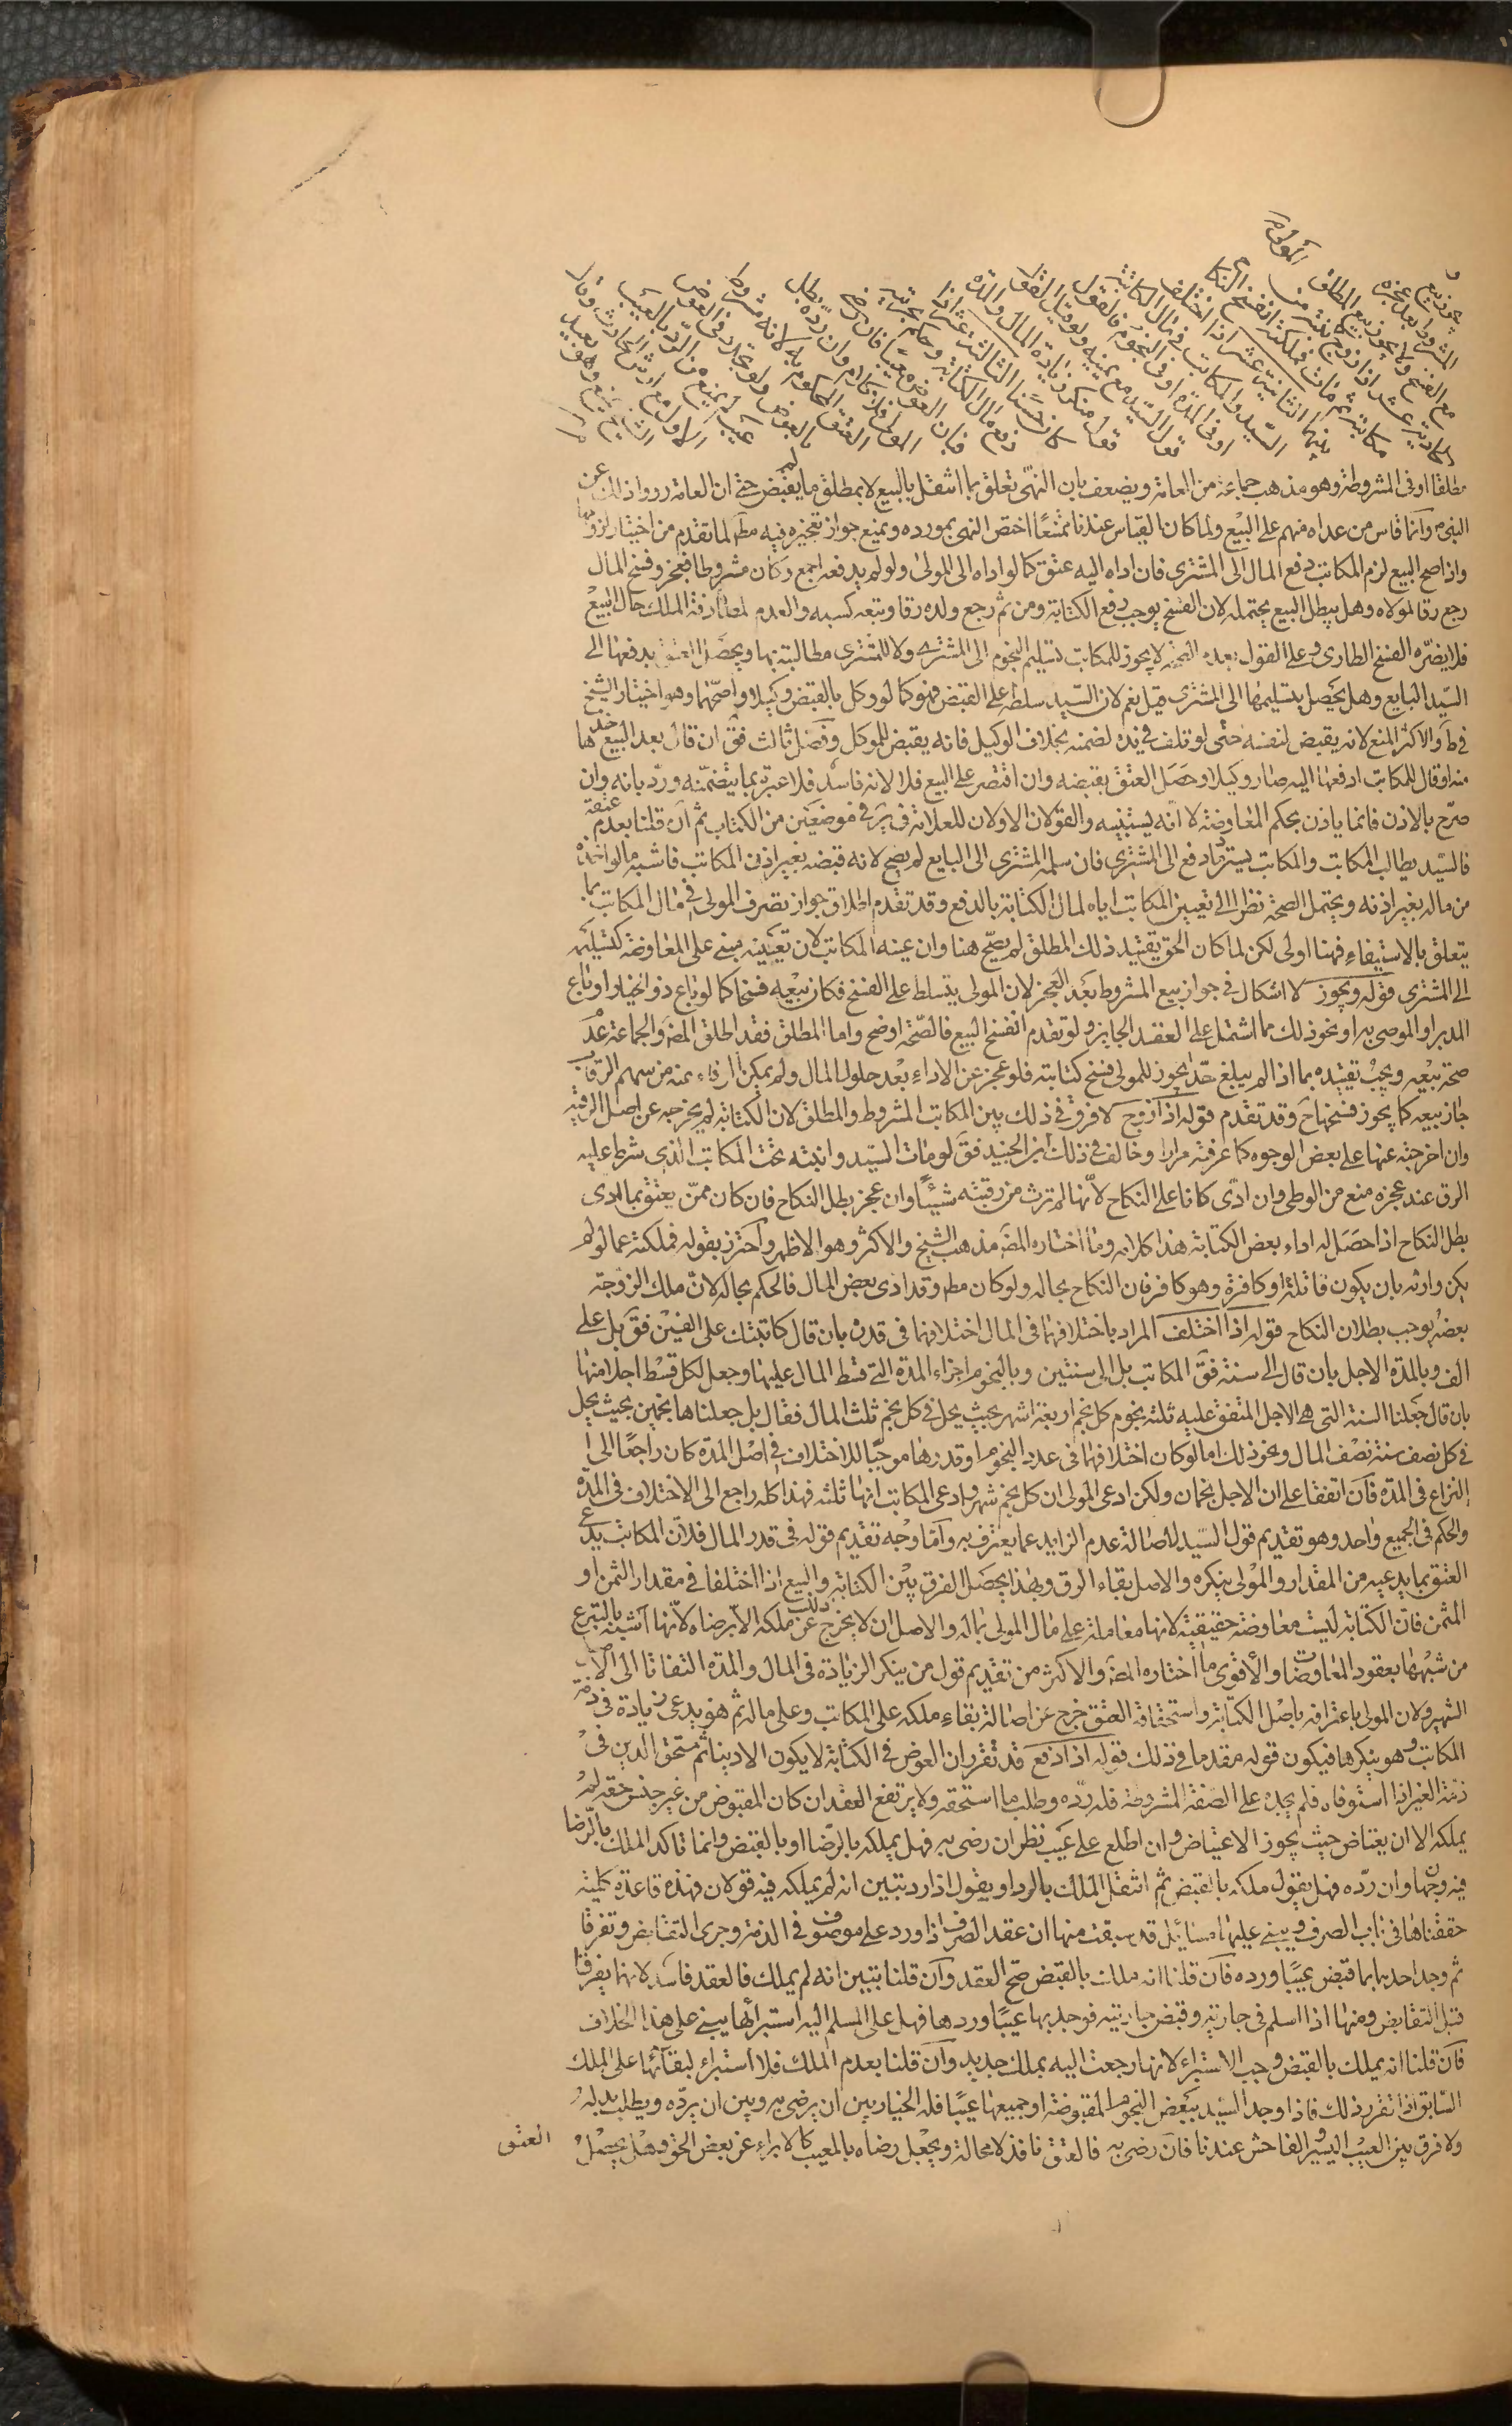 مطلقا او فى المشروطة وهو مذهب جماعة من العامة ويضعف بان النهى تعلق بما انتقل بالبيع لا بمطلق ما لم يقبض حتى ان العامة رووا ذلك عن
النبى وانما قاس من عداه منهم على البيع ولما كان القياس عندنا ممتنعًا اختص النهى بمورده ويمنع جواز تعجيزه فيه مطم لما تقدم من اختيار لزومها
واذا صح البيع لزم المكاتب دفع المال الى المشترى فان اداه اليه عتق كما لو اداه الى المولى ولو لم يدفعه اجمع وكان مشروطا فعجز وفسخ المال
رجع رقا لمولاه وهل يبطل البيع يحتمله لان الفسخ يوجب رفع الكتابة ومن ثم رجع ولده رقا وتبعه كسبه والعدم لمصادفة الملك حال البيع
فلا يضره الفسخ الطارى وعلى القول بعدم الصحة لا يجوز للمكاتب تسليم النجوم الى المشترى ولا للمشترى مطالبته بها ويحصل العتق بدفعها الى
السيد البايع وهل يحصل بتسليمها الى المشترى قيل نعم لان السيد سلطه على القبض فهو كما لو وكل بالقبض وكيلا واصحهما وهو اختيار الشيخ
فى ط والاكثر المنع لانه يقبض لنفسه حتى لو تلف فى يده لضمنه بخلاف الوكيل فانه يقبض للموكل وفصل ثالث فق ان قال بعد البيع خذها
منه او قال للمكاتب ادفعها اليه صار وكيلا وحصل العتق بقبضه وان اقتصر على البيع فلا لانه فاسد فلا عبرة بما يتضمنه ورد بانه وان
صرح بالاذن فانما ياذن بحكم المعاوضة لا انه يستنيبه والقولان الاولان للعلامة فى ير فى موضعين من الكتاب ثم ان قلنا بعدم عتقه
فالسيد يطالب المكاتب والمكاتب يسترد ما دفع الى المشترى فان سلمه المشترى الى البايع لم يصح لانه قبضه بغير اذن المكاتب فاشبه ما لو اخذه
من ماله بغير اذنه ويحتمل الصحة نظرا الى تعيين المكاتب اياه لمال الكتابة بالدفع وقد تقدم اطلاق جواز تصرف المولى فى مال المكاتب بما
يتعلق بالاستيفاء فهنا اولى لكن لما كان الحق تقييد ذلك المطلق لم يصح هنا وان عينه المكاتب لان تعيينه مبنى على المعاوضة كتسليمه
الى المشترى قوله ويجوز لا اشكال فى جواز بيع المشروط بعد العجز لان المولى يتسلط على الفسخ فكان بيعه فسخا كما لو باع ذو الخيار او باع
المدبر او الموصى به او نحو ذلك مما اشتمل على العقد الجايز ولو تقدم انفسخ البيع فالصحة اوضح واما المطلق فقد اطلق المصَ والجماعة عدم
صحة بيعه ويجب تقييده بما اذا لم يبلغ حدًّا يجوز للمولى فسخ كتابته فلو عجز عن الاداء بعد حلول المال ولم يمكن الوفاء عنه من سهم الرقاب
جاز بيعه كما يجوز فسخها ح وقد تقدم قوله اذا زوج لا فرق فى ذلك بين المكاتب المشروط والمطلق لان الكتابة لم يخرجه عن اصل الرقية
وان اخرجته عنها على بعض الوجوه كما عرفته مرارا وخالف فى ذلك ابن الجنيد فق لو مات السيد وابنته تحت المكاتب الذى شرط عليه
الرق عند عجزه منع من الوطى وان ادى كانا على النكاح لانها لم ترث من رقبته شيئًا وان عجز بطل النكاح فان كان ممن يعتق بما ادى
بطل النكاح اذا حصل له اداء بعض الكتابة هذا كلامه وما اختاره المصَ مذهب الشيخ والاكثر وهو الاظهر واحترز بقوله فملكته عما لو لم
يكن وارثه بان يكون قاتلة او كافرة وهو كافر فان النكاح بحاله ولو كان مطم وقد ادى بعض المال فالحكم بحاله لان ملك الزوجة
بعضه يوجب بطلان النكاح قوله اذا اختلف المراد باختلافهما فى المال اختلافهما فى قدره بان قال كاتبتك على الفين فق بل على
الف وبالمدة الاجل بان قال الى سنة فق المكاتب بل الى سنتين وبالنجوم اجزاء المدة التى قسط المال عليها وجعل لكل قسط اجلا منها
بان قال جعلنا السنة التى هى الاجل المتفق عليه ثلثة نجوم كل نجم اربعة اشهر بحيث يحل فى كل نجم ثلث المال فقال بل جعلناها نجمين بحيث يحل
فى كل نصف سنة نصف المال ونحو ذلك اما لو كان اختلافهما فى عدد النجوم او قدرها موجبًا للاختلاف فى اصل المدة كان راجعًا الى
النزاع فى المدة فان اتفقا على ان الاجل نجمان ولكن ادعى المولى ان كل نجم شهر وادعى المكاتب انها ثلثة فهذا كله راجع الى الاختلاف فى المدة
والحكم فى الجميع واحد وهو تقديم قول السيد لاصالة عدم الزايد عما يعترف به واما وجه تقديم قوله فى قدر المال فلان المكاتب يدعى
العتق بما يدعيه من المقدار والمولى ينكره والاصل بقاء الرق وبهذا يحصل الفرق بين الكتابة والبيع اذا اختلفا فى مقدار الثمن او
المثمن فان الكتابة ليست معاوضة حقيقية لانها معاملة على مال المولى بماله والاصل ان لا يخرج ذلك عن ملكه الا برضاه لانها اشبه بالتبرع
من شبهها بعقود المعاوضات والاقوى ما اختاره المصَ والاكثر من تقديم قول من ينكر الزيادة فى المال والمدة التفاتا الى الاصل
الشهير ولان المولى باعترافه باصل الكتابة واستحقاقه العتق خرج عن اصالة بقاء ملكه على المكاتب وعلى ماله ثم هو يدعى زيادة فى ذمة
المكاتب وهو ينكرها فيكون قوله مقدما فى ذلك قوله اذا دفع قد تقرر ان العوض فى الكتابة لا يكون الا دينا ثم مستحق الدين فى
ذمة الغير اذا استوفاه فلم يجده على الصفة المشروطة فله رده وطلب ما استحقه ولا يرتفع العقد ان كان المقبوض من غير جنس حقه لم
يملكه الا ان يعتاض حيث يجوز الاعتياض وان اطلع على عيب نظر ان رضى به فهل يملكه بالرضا او بالقبض وانما تاكد الملك بالرضا
فيه وجهان وان رده فهل يقول ملكه بالقبض ثم انتقل الملك بالرد او يقول اذا رد تبين انه لم يملكه فيه قولان فهذه قاعدة كلية
حققناها فى باب الصرف ويبنى عليها مسائل قد سبقت منها ان عقد الصرف اذا ورد على موصوف فى الذمة وجرى التقابض وتفرقا
ثم وجد احدهما بما قبض عيبًا ورده فان قلنا انه ملك بالقبض صح العقد وان قلنا تبين انه لم يملك فالعقد فاسد لانهما تفرقا
قبل التقابض ومنها اذا اسلم فى جارية وقبض جارية فوجد بها عيبًا وردها فهل على المسلم اليه استبراؤها يبنى على هذا الخلاف
فان قلنا انه يملك بالقبض وجب الاستبراء لانها رجعت اليه بملك جديد وان قلنا بعدم الملك فلا استبراء لبقائها على الملك
السابق اذا تقرر ذلك فاذا وجد السيد ببعض النجوم المقبوضة او جميعها عيبًا فله الخيار بين ان يرضى به وبين ان يرده ويطلب بدله
ولا فرق بين العيب اليسير والفاحش عندنا فان رضى به فالعتق نافذ لا محالة ويجعل رضاه بالمعيب كالابراء عن بعض الحق وهل يحصل
العتق